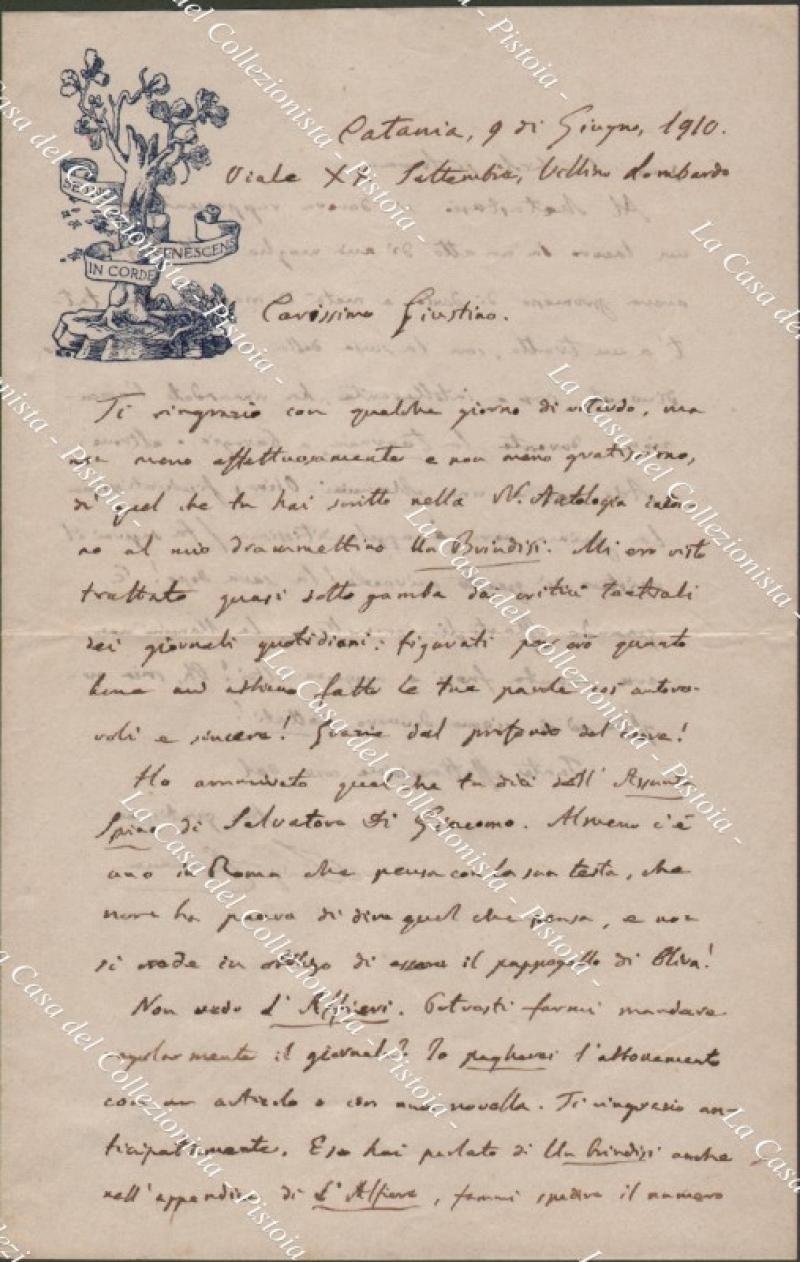 Catania, 9 di Giugno, 1910.
Viale XX Settembre, Villino Lombardo
SEMPER
IN CORDE
ENESCENS
Carissimo Giustino.
Ti ringrazio con qualche giorno di ritardo, ma
non meno affettuosamente e non meno gratissimo,
di quel che tu hai scritto nella N. Antologia intor
no al mio drammettino Un Brindisi. Mi ero visto
trattato quasi sotto gamba dai critici teatrali
dei giornali quotidiani: figurati perciò quanto
bene mi abbiano fatto le tue parole così autore-
voli e sincere! Grazie dal profondo del cuore!
Ho ammirato quel che tu dici dell'Assunta
Spina di Salvatore Di Giacomo. Almeno c'è
uno in Roma che pensa con la sua testa, che
non ha paura di dire quel che pensa, e non
si crede in obbligo di essere il pappagallo di Oliva!
Non vedo L'Alfiere. Potresti farmi mandare
regolarmente il giornale? Io pagherei l'abbonamento
con un articolo o con una novella. Ti ringrazio an-
ticipatamente. E se hai parlato di Un Brindisi anche
nell'appendice di L'Alfiere, fammi spedire il numero
La Casa del Collezionista - Pistoia -